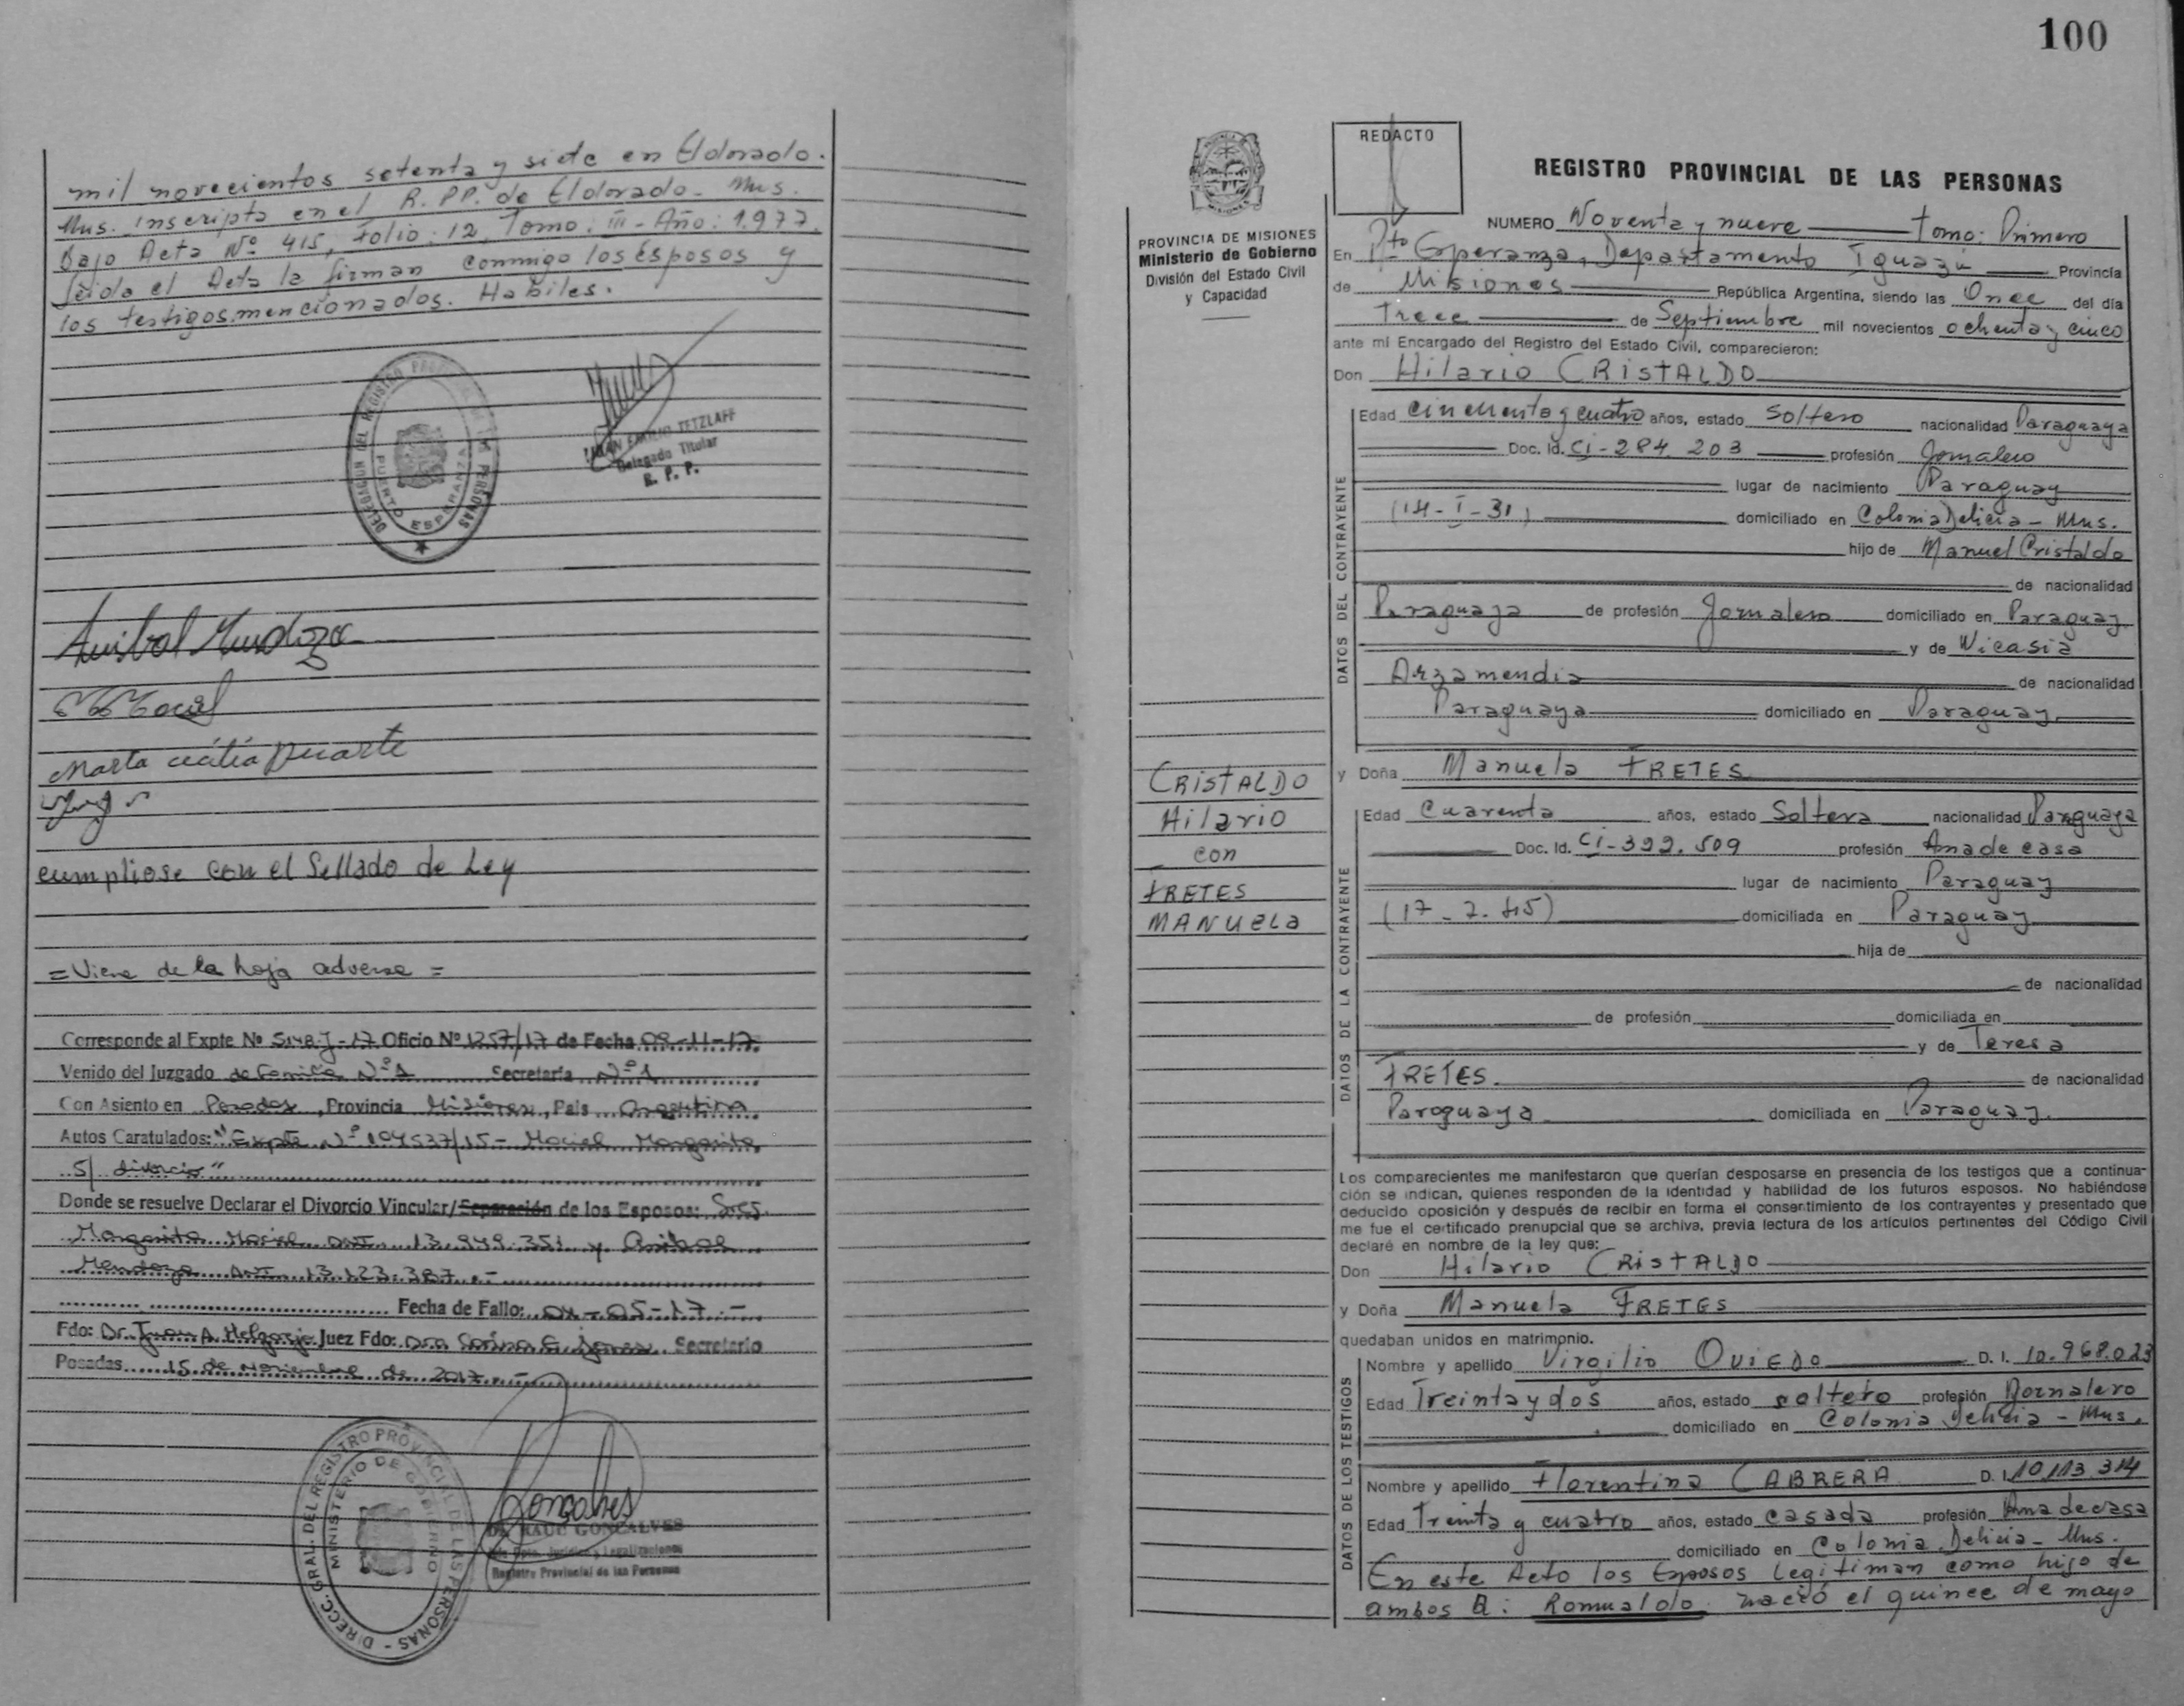 mil novecientos setenta y siete en Eldorado.
Mns. Inscripta en el R.PP. de Eldorado - Mns.
Bajo Acta Nº 415, Folio: 12, Tomo: III - Año: 1.977.
leída el Acta la firman conmigo los Esposos y
los testigos mencionados. Habiles.
DELEGACION DEL REGISTRO PROVINCIAL DE LAS PERSONAS
PUERTO ESPERANZA
JUAN EMILIO TETZLAFF
Delegado Titular
R. P. P.
Anibal Mendoza
Marta Duarte
cumpliose con el Sellado de Ley
= Viene de la hoja adversa =
Corresponde al Expte Nº 5148-J-17 Oficio Nº 1257/17 de Fecha 09-11-17.
Venido del Juzgado de Familia Nº 1 Secretaría Nº 1
Con Asiento en Posadas, Provincia Misiones, Pais Argentina
Autos Caratulados: "Expte Nº 104537/15 - Maciel Margarita
S/ divorcio"
Donde se resuelve Declarar el Divorcio Vincular/Separación de los Esposos:
Margarita Maciel DNI 13.949.351 y Anibal
Mendoza DNI 13.123.387.-
Fecha de Fallo: 04-05-17.-
Fdo: Dr. Juan A. Melgarejo Juez Fdo: Dra Secretario
Posadas 15 de Noviembre de 2017.-
DIRECC. GRAL. DEL REGISTRO PROVINCIAL DE LAS PERSONAS
MINISTERIO DE GOBIERNO
Goncalves
RAUL GONCALVES
Dpto. Jurídico y Legalizaciones
Registro Provincial de las Personas
100
REDACTO
REGISTRO PROVINCIAL DE LAS PERSONAS
PROVINCIA DE MISIONES
Ministerio de Gobierno
División del Estado Civil
y Capacidad
CRISTALDO
Hilario
con
FRETES
MANUELA
NUMERO Noventa y nueve Tomo: Primero
En Pto Esperanza, Departamento Iguazú Provincia
de Misiones República Argentina, siendo las Once del día
Trece de Septiembre mil novecientos ochenta y cinco
ante mí Encargado del Registro del Estado Civil, comparecieron:
Don Hilario CRISTALDO
DATOS DEL CONTRAYENTE
Edad Cincuenta y cuatro años, estado Soltero nacionalidad Paraguaya
Doc. Id. CI-284.203 profesión Jornalero
lugar de nacimiento Paraguay
(14-I-31) domiciliado en Colonia Delicia - Mns.
hijo de Manuel Cristaldo
de nacionalidad
Paraguaya de profesión Jornalero domiciliado en Paraguay
y de Nicasia
Arzamendia de nacionalidad
Paraguaya domiciliado en Paraguay
y Doña Manuela FRETES
DATOS DE LA CONTRAYENTE
Edad Cuarenta años, estado Soltera nacionalidad Paraguaya
Doc. Id. CI-392.509 profesión Ama de casa
lugar de nacimiento Paraguay
(17-2-45) domiciliada en Paraguay
hija de
de nacionalidad
de profesión domiciliada en
y de Teresa
FRETES. de nacionalidad
Paraguaya domiciliada en Paraguay.
Los comparecientes me manifestaron que querían desposarse en presencia de los testigos que a continua-
ción se indican, quienes responden de la identidad y habilidad de los futuros esposos. No habiéndose
deducido oposición y después de recibir en forma el consentimiento de los contrayentes y presentado que
me fue el certificado prenupcial que se archiva, previa lectura de los artículos pertinentes del Código Civil
declaré en nombre de la ley que:
Don Hilario CRISTALDO
y Doña Manuela FRETES
quedaban unidos en matrimonio.
DATOS DE LOS TESTIGOS
Nombre y apellido Virgilio OVIEDO D. I. 10.968.023
Edad Treinta y dos años, estado soltero profesión Jornalero
domiciliado en Colonia Delicia - Mns.
Nombre y apellido Florentina CABRERA D. I. 10.113.314
Edad Treinta y cuatro años, estado casada profesión Ama de casa
domiciliado en Colonia Delicia - Mns.
En este Acto los Esposos Legitiman como hijo de
ambos a: Romualdo nació el quince de mayo